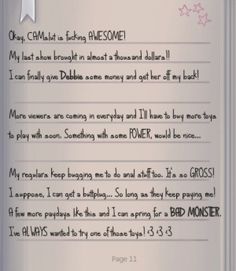 Okay, CAMslut is fucking AWESOME!
My last show brought in almost a thousand dollars!!
I can finally give Debbie some money and get her off my back!
More viewers are coming in everyday and I'll have to buy more toys
to play with soon. Something with some POWER, would be nice...
My regulars keep bugging me to do anal stuff. It's so GROSS!
I suppose, I can get a buttplug... So long as they keep paying me!
A few more paydays like this and I can spring for a BAD MONSTER.
I've ALWAYS wanted to try one of those toys! <3 <3 <3
Page 11